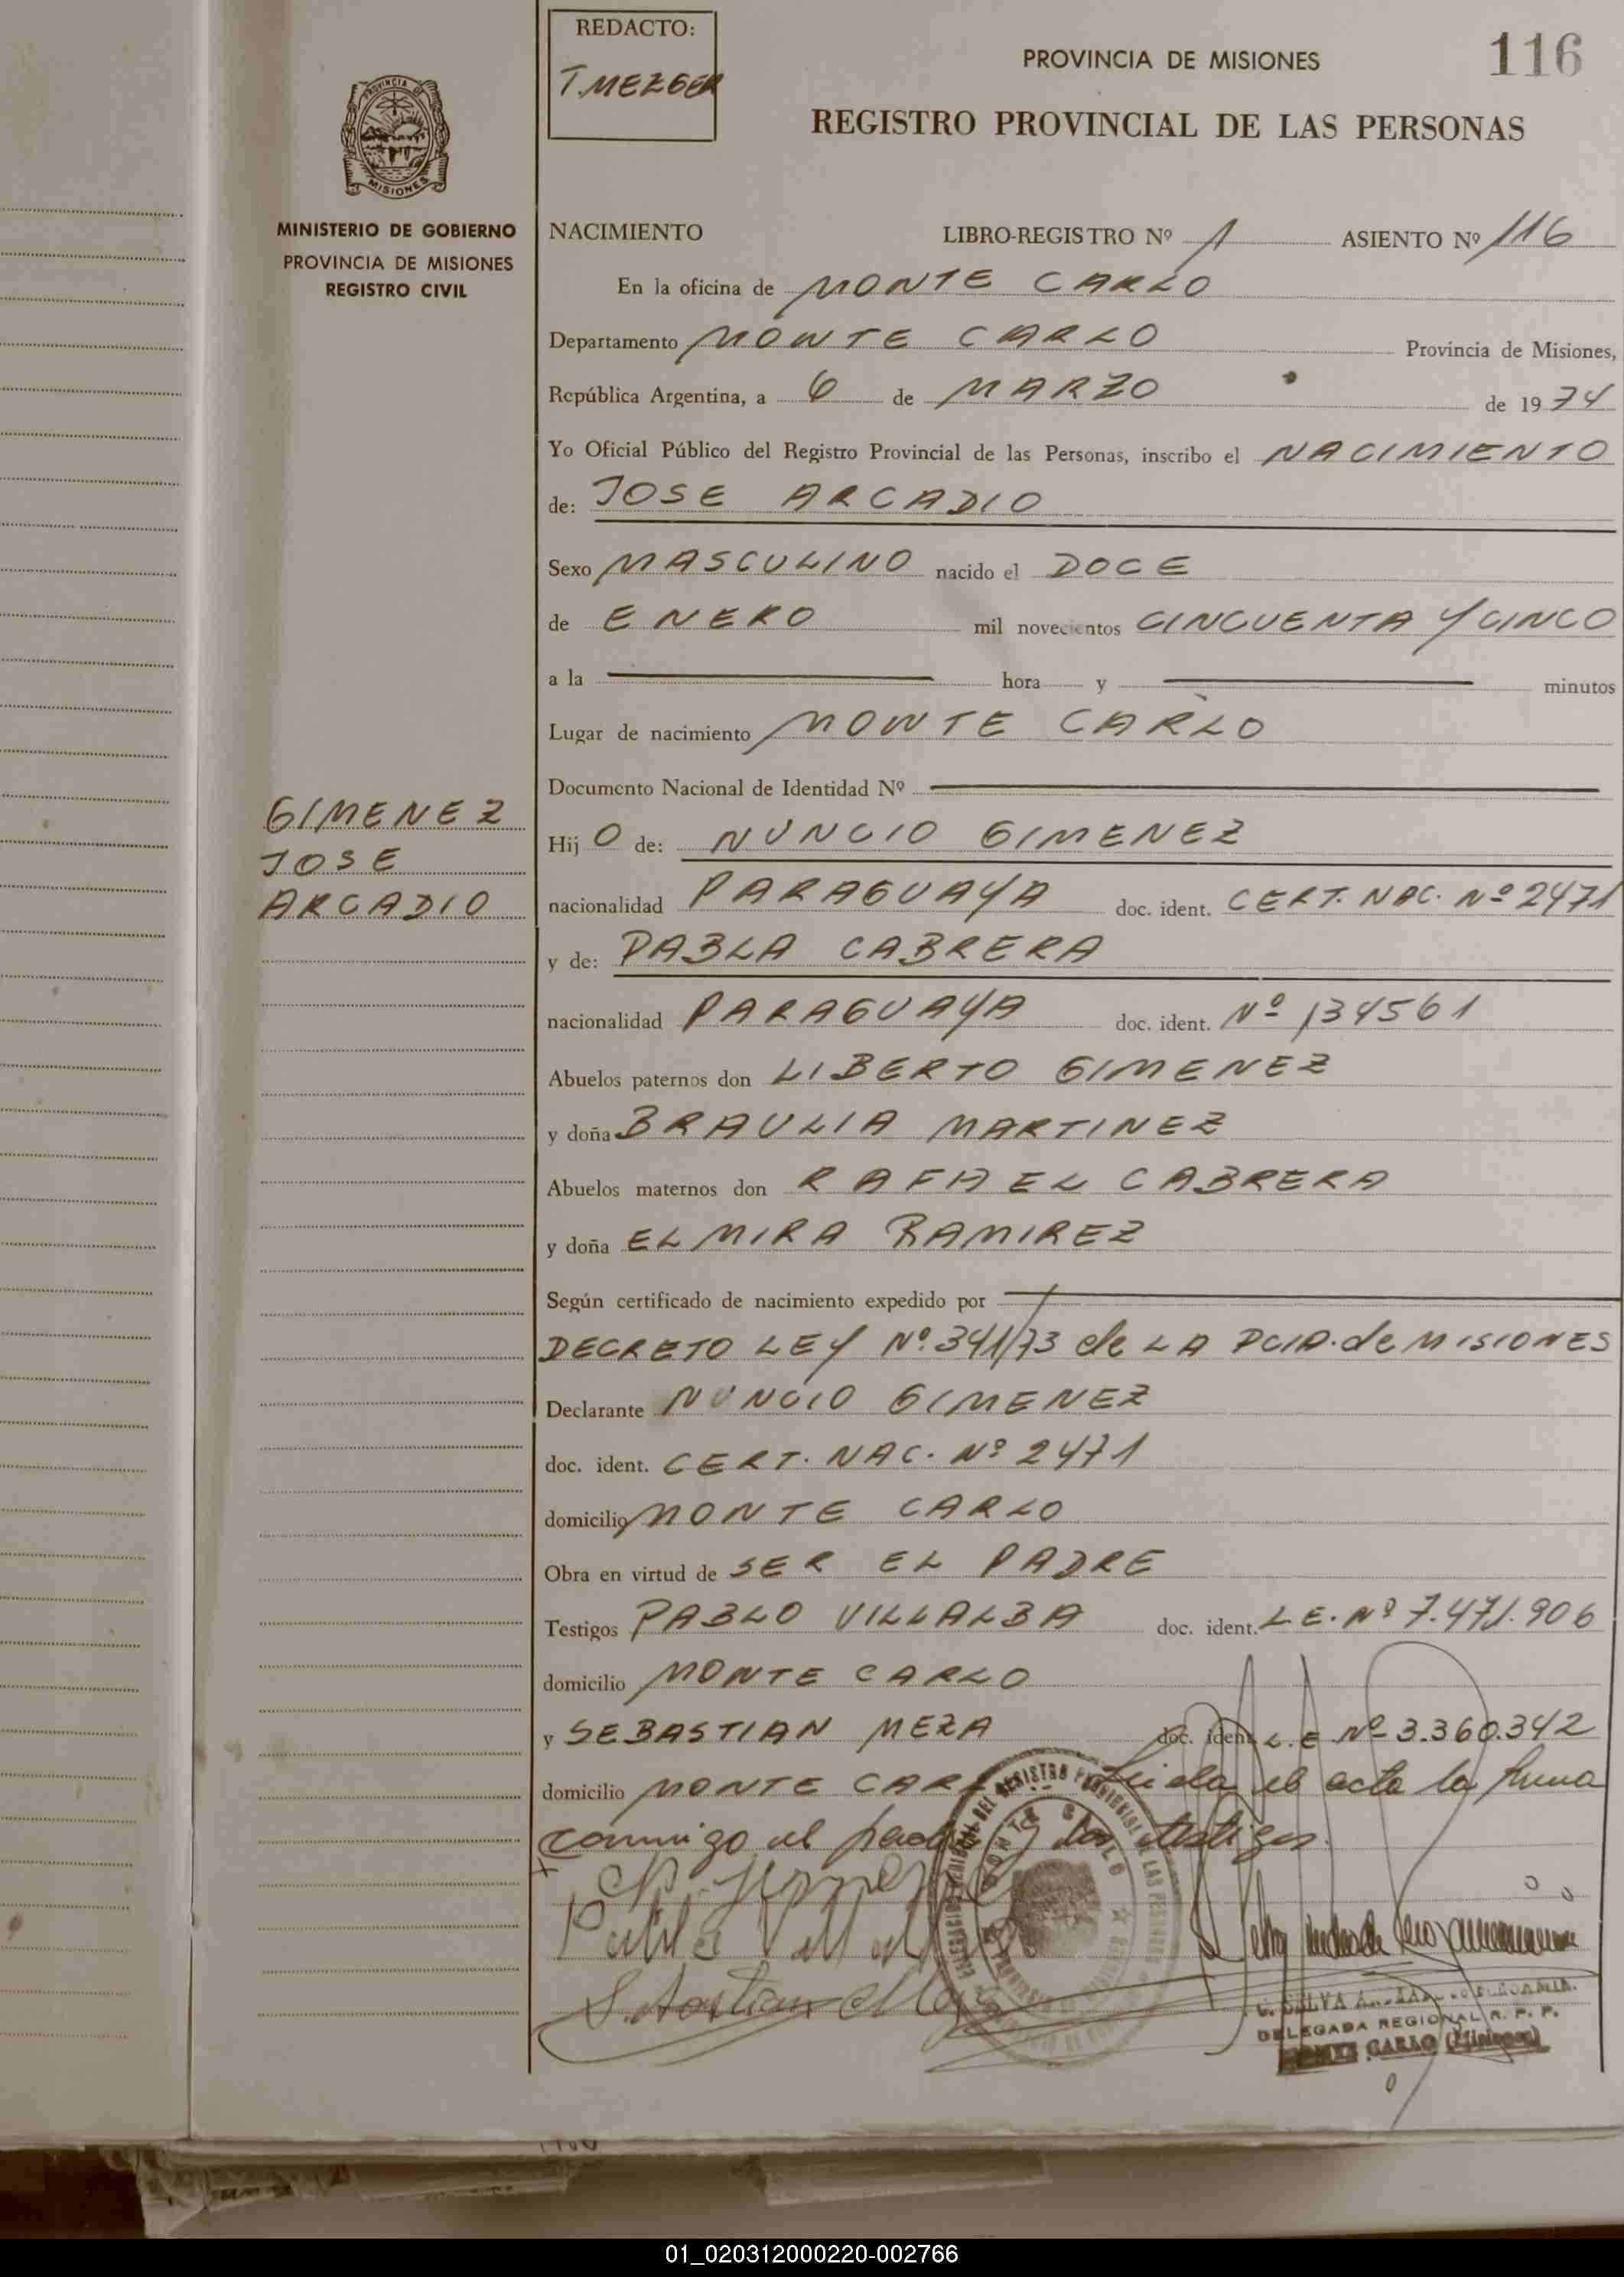 REDACTO:
T. MEZGER
PROVINCIA DE MISIONES
116
REGISTRO PROVINCIAL DE LAS PERSONAS
PROVINCIA DE
MISIONES
MINISTERIO DE GOBIERNO
PROVINCIA DE MISIONES
REGISTRO CIVIL
NACIMIENTO LIBRO-REGISTRO Nº 1 ASIENTO Nº 116
En la oficina de MONTE CARLO
Departamento MONTE CARLO Provincia de Misiones,
República Argentina, a 6 de MARZO de 1974
Yo Oficial Público del Registro Provincial de las Personas, inscribo el NACIMIENTO
de: JOSE ARCADIO
Sexo MASCULINO nacido el DOCE
de ENERO mil novecientos CINCUENTA Y CINCO
a la hora y minutos
Lugar de nacimiento MONTE CARLO
Documento Nacional de Identidad Nº
GIMENEZ
JOSE
ARCADIO
Hij O de: NUNCIO GIMENEZ
nacionalidad PARAGUAYA doc. ident. CERT. NAC. Nº 2471
y de: PABLA CABRERA
nacionalidad PARAGUAYA doc. ident. Nº 134561
Abuelos paternos don LIBERTO GIMENEZ
y doña BRAULIA MARTINEZ
Abuelos maternos don RAFAEL CABRERA
y doña ELMIRA RAMIREZ
Según certificado de nacimiento expedido por
DECRETO LEY Nº 341/73 de LA PCIA. de MISIONES
Declarante NUNCIO GIMENEZ
doc. ident. CERT. NAC. Nº 2471
domicilio MONTE CARLO
Obra en virtud de SER EL PADRE
Testigos PABLO VILLALBA doc. ident. L.E. Nº 7.471.906
domicilio MONTE CARLO
y SEBASTIAN MEZA doc. ident. L.E Nº 3.360.342
domicilio MONTE CARLO Leida el acta la firma
conmigo el padre y los testigos.
DELEGADA REGIONAL R. P. P.
MONTE CARLO (Misiones)
01_020312000220-002766